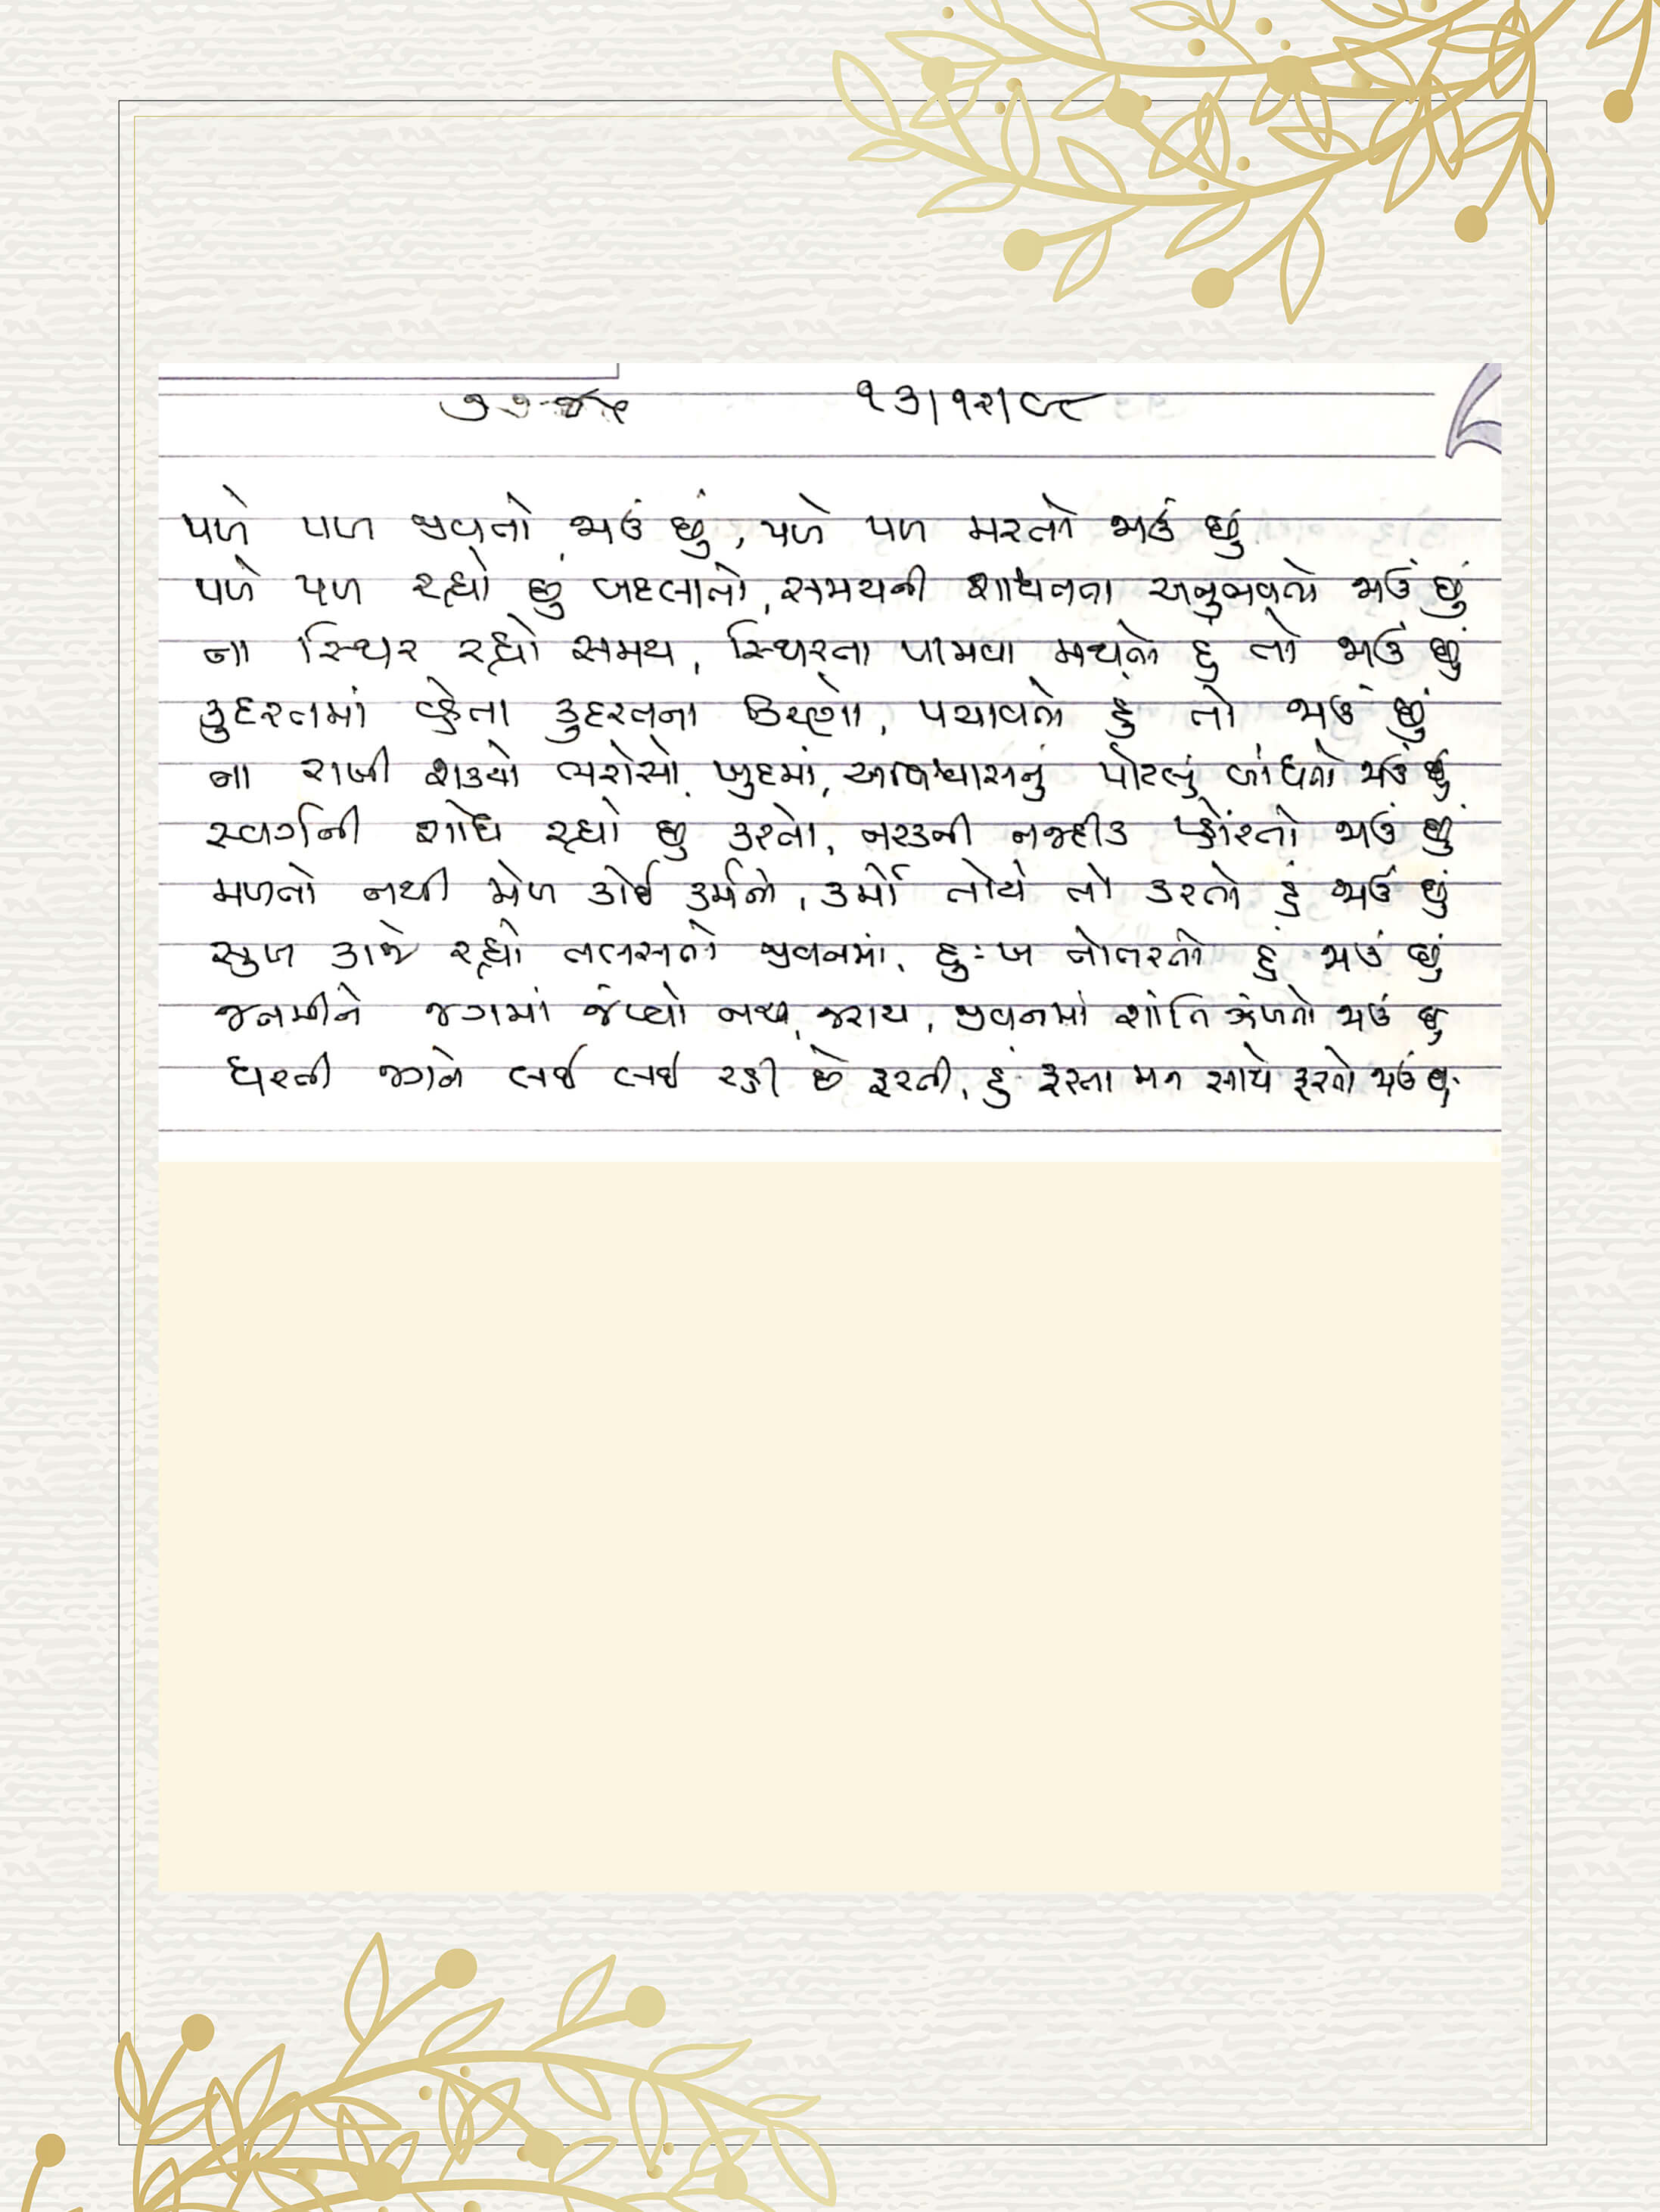 ૧૩/૧૨/૯૮
પળે પળ જીવતો જાઉં છું, પળે પળ મરતો જાઉં છું
પળે પળ રહ્યો છું બદલાતો, સમયની શાધનતા અનુભવતો જાઉં છું
ના સ્થિર રહ્યો સમય, સ્થિરતા પામવા મથતો હું તો જાઉં છું
કુદરતમાં વ્હેતા કુદરતના કિરણો, પચાવતો હું તો જાઉં છું
ના રાખી શક્યો ભરોસો ખુદમાં, અવિશ્વાસનું પોટલું બાંધતો જાઉં છું
સ્વર્ગની શોધ રહ્યો છું કરતો, નરકની નજદીક પ્હોંચતો જાઉં છું
મળતો નથી મેળ કોઈ કર્મનો, કર્મો તોયે તો કરતો હું જાઉં છું
સુખ કાજે રહ્યો તલસતો જીવનમાં, દુઃખ નોતરતો હું જાઉં છું
જનમીને જગમાં જંપ્યો નથી જરાય, જીવનમાં શાંતિ ઝંખતો જાઉં છું
ધરતી જગને લઈ લઈ રહી છે ફરતી, હું ફરતા મન સાથે ફરતો જાઉં છું